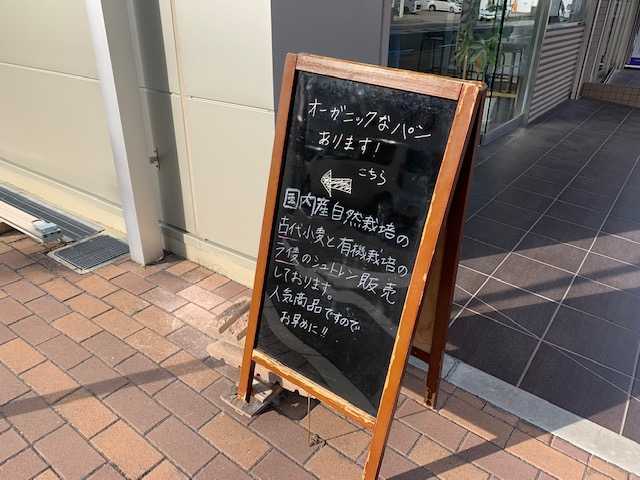 オーガニックなパン
あります!
こちら
国内産自然栽培の
古代小麦と有機栽培の
今後のシュトレン販売
しております。
人気商品ですので
お早めに!!